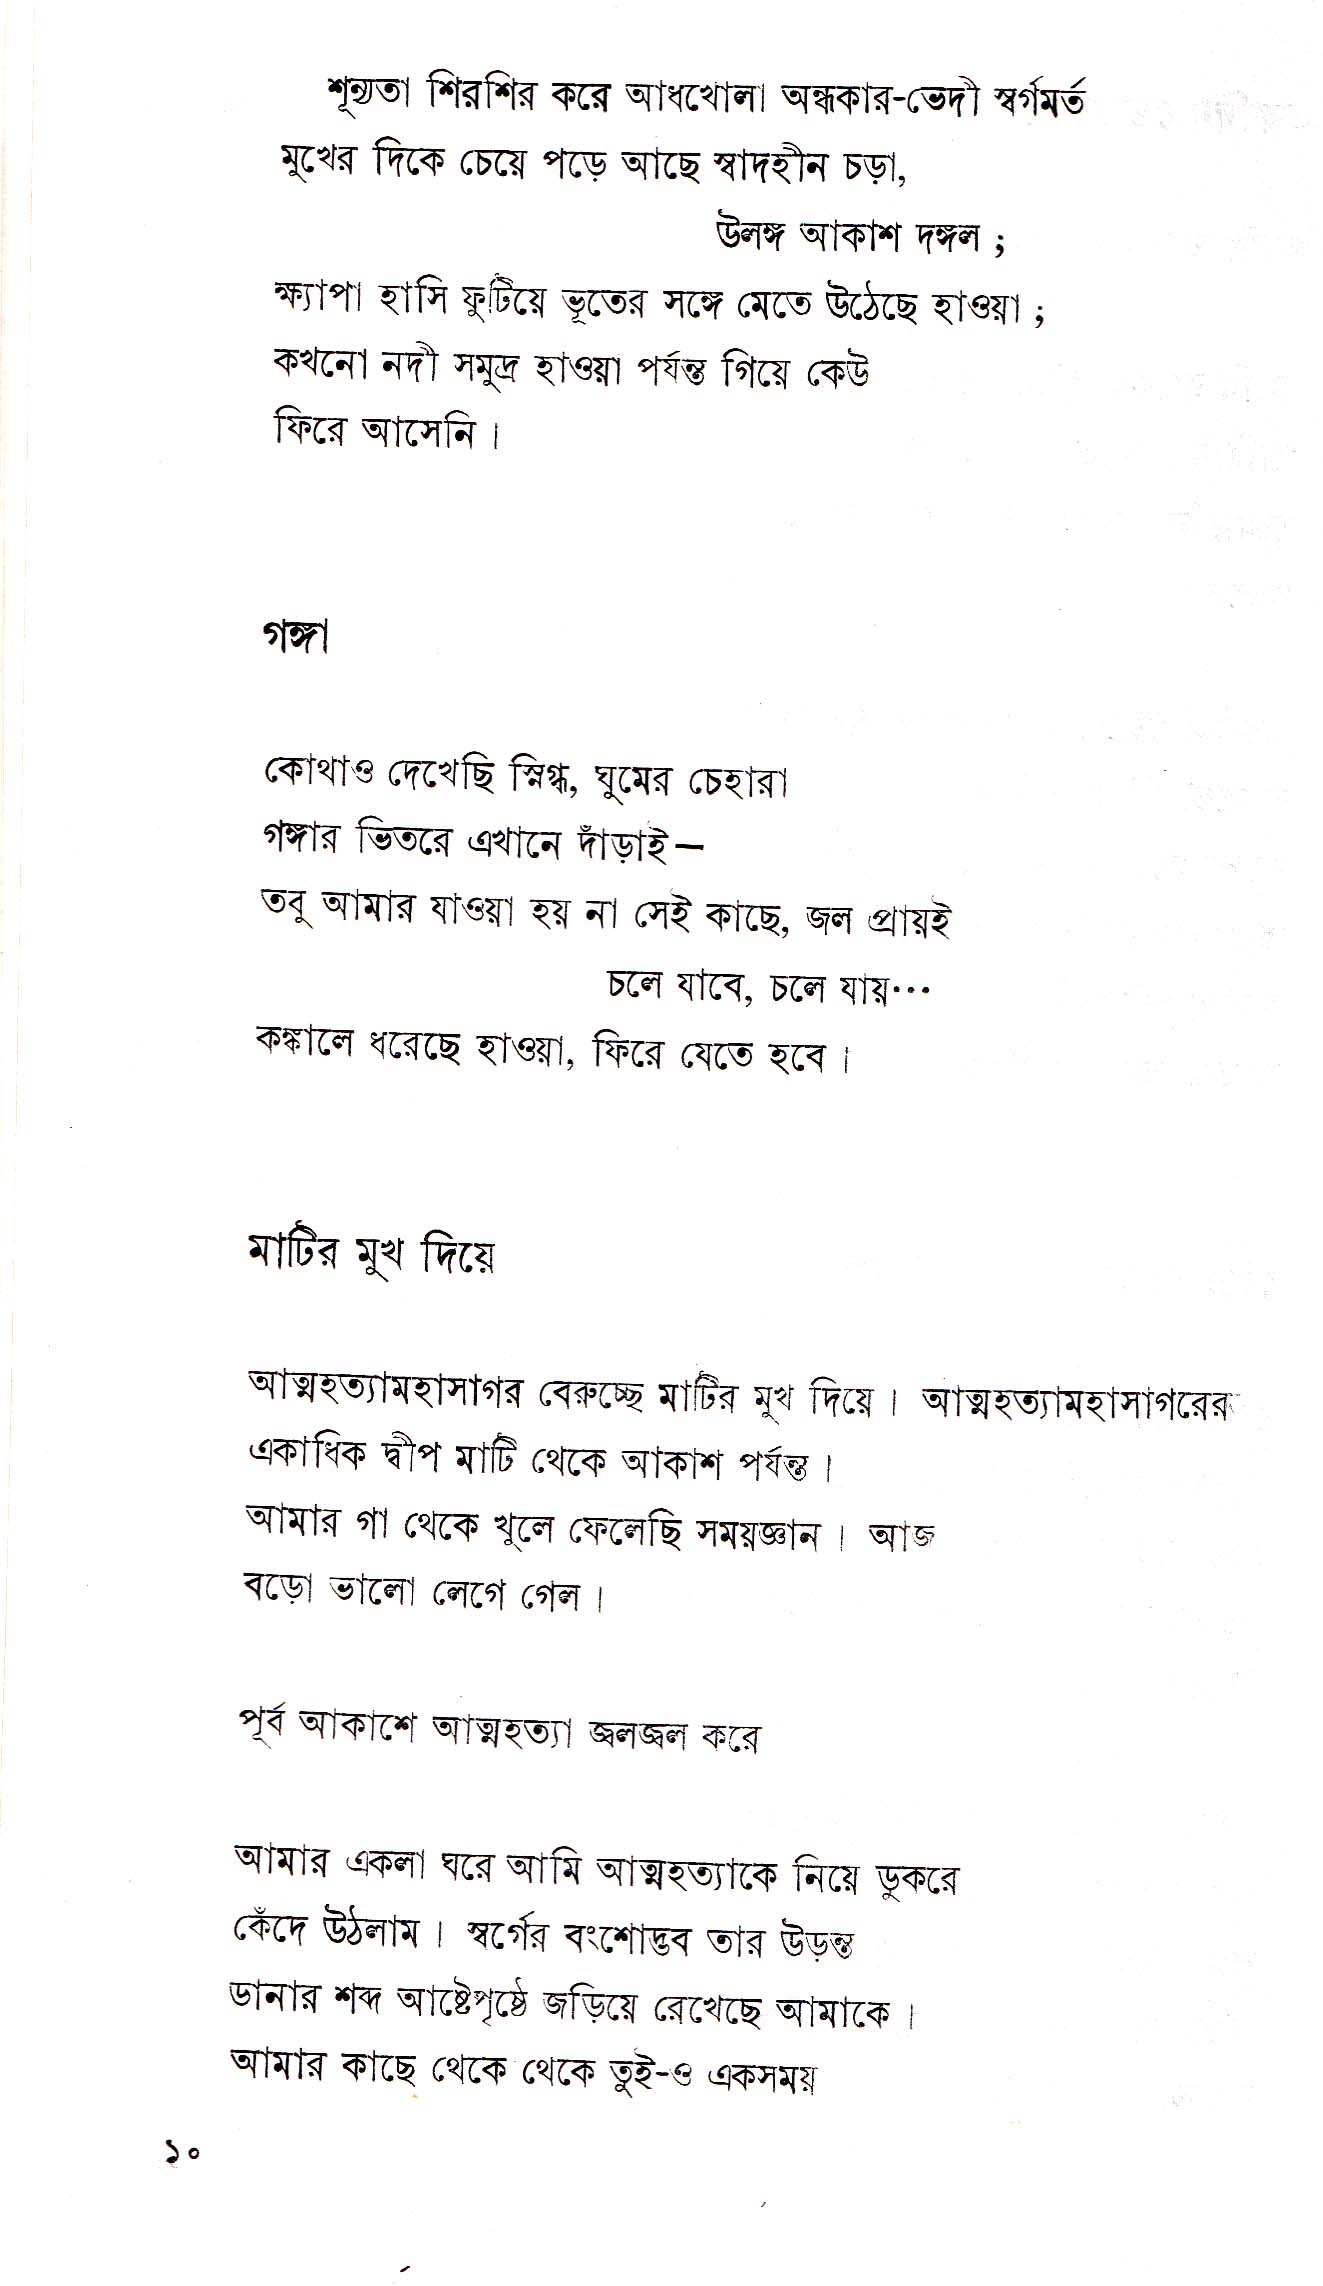 শূন্যতা শিরশির করে আধখোলা অন্ধকার-ভেদী স্বর্গমর্ত
মুখের দিকে চেয়ে পড়ে আছে স্বাদহীন চড়া,
উলঙ্গ আকাশ দঙ্গল ;
ক্ষ্যাপা হাসি ফুটিয়ে ভূতের সঙ্গে মেতে উঠেছে হাওয়া ;
কখনো নদী সমুদ্র হাওয়া পর্যন্ত গিয়ে কেউ
ফিরে আসেনি ।
গঙ্গা
কোথাও দেখেছি স্নিগ্ধ, ঘুমের চেহারা
গঙ্গার ভিতরে এখানে দাঁড়াই—
তবু আমার যাওয়া হয় না সেই কাছে, জল প্রায়ই
চলে যাবে, চলে যায়···
কঙ্কালে ধরেছে হাওয়া, ফিরে যেতে হবে ।
মাটির মুখ দিয়ে
আত্মহত্যামহাসাগর বেরুচ্ছে মাটির মুখ দিয়ে । আত্মহত্যামহাসাগরের
একাধিক দ্বীপ মাটি থেকে আকাশ পর্যন্ত ।
আমার গা থেকে খুলে ফেলেছি সময়জ্ঞান । আজ
বড়ো ভালো লেগে গেল ।
পূর্ব আকাশে আত্মহত্যা জ্বলজ্বল করে
আমার একলা ঘরে আমি আত্মহত্যাকে নিয়ে ডুকরে
কেঁদে উঠলাম । স্বর্গের বংশোদ্ভব তার উড়ন্ত
ডানার শব্দ আষ্টেপৃষ্ঠে জড়িয়ে রেখেছে আমাকে ।
আমার কাছে থেকে থেকে তুই-ও একসময়
১০